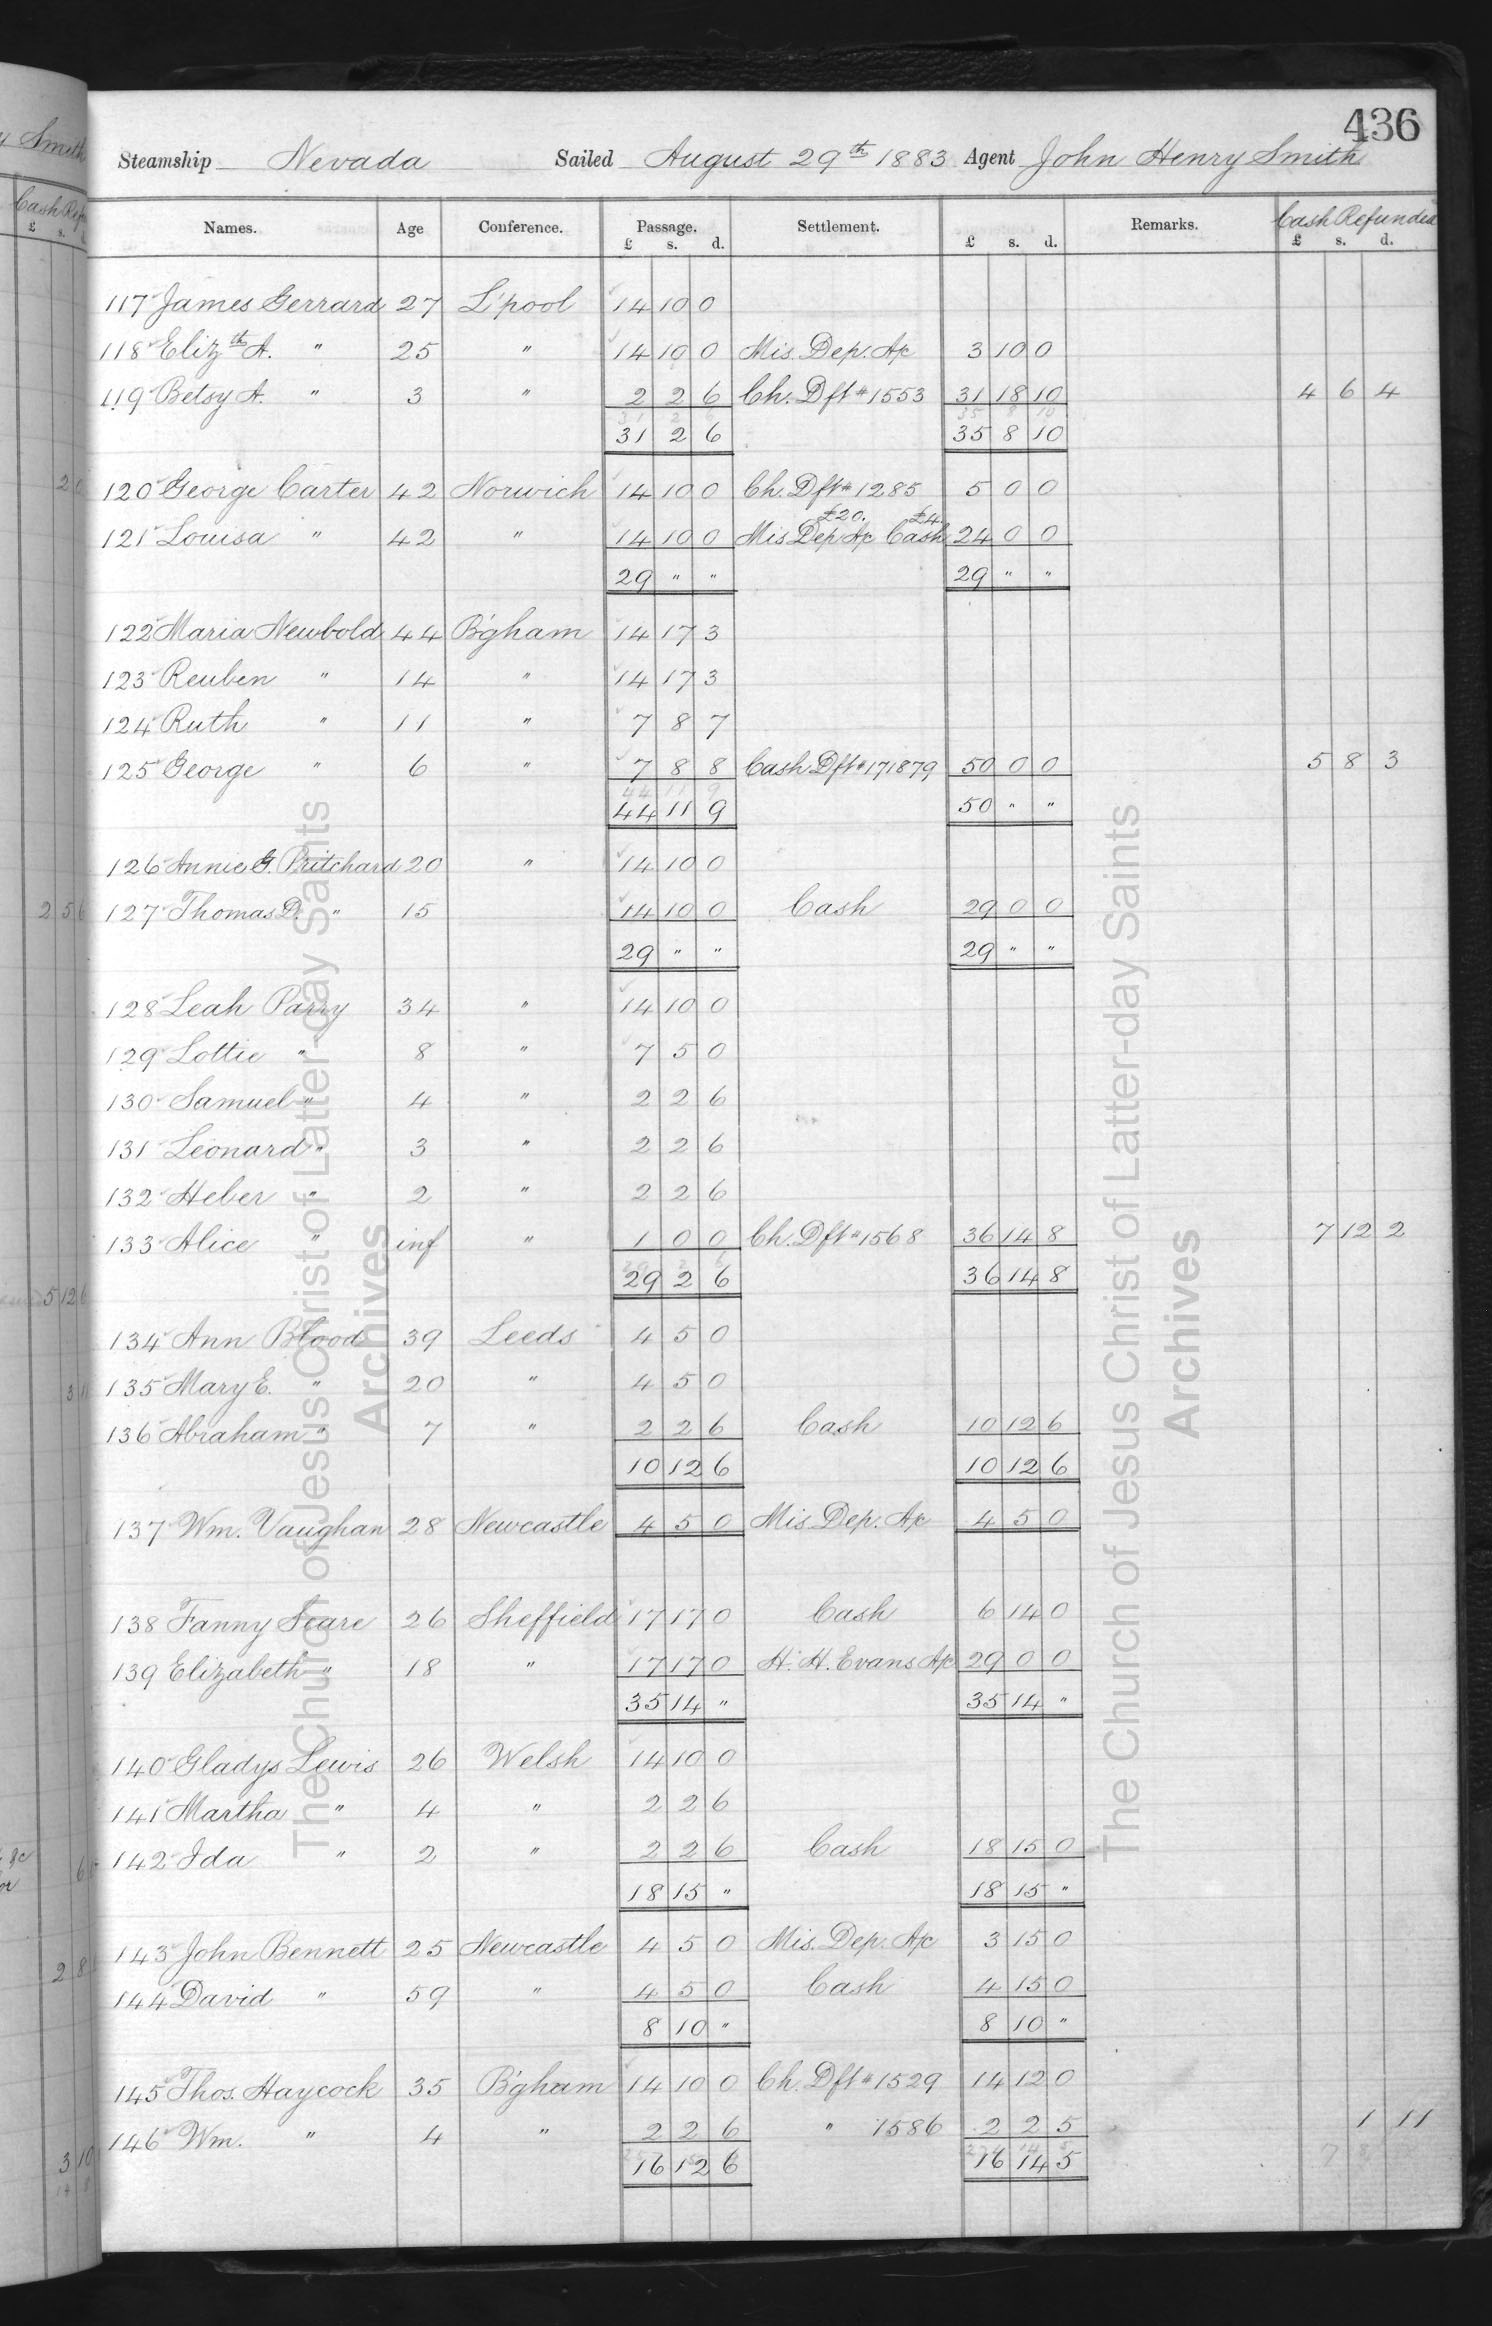 436
Steamship Nevada Sailed August 29th 1883 Agent John Henry Smith
Names. Age Conference. Passage. Settlement. Remarks. Cash Refunded
£ s. d. £ s. d. £ s. d.
117 James Gerrard 27 L'pool 14 10 0
118 Elizth A. " 25 " 14 10 0 Mis. Dep. A/c 3 10 0
119 Betsy A. " 3 " 2 2 6 Ch. Dft # 1553 31 18 10 4 6 4
31 2 6 35 8 10
120 George Carter 42 Norwich 14 10 0 Ch. Dft # 1285 5 0 0
£20. £4.
121 Louisa " 42 " 14 10 0 Mis Dep A/c Cash 24 0 0
29 " " 29 " "
122 Maria Newbold 44 B'gham 14 17 3
123 Reuben " 14 " 14 17 3
124 Ruth " 11 " 7 8 7
125 George " 6 " 7 8 8 Cash Dft # 171879 50 0 0 5 8 3
44 11 9 50 " "
126 Annie G. Pritchard 20 " 14 10 0
127 Thomas D. " 15 14 10 0 Cash 29 0 0
29 " " 29 " "
128 Leah Parry 34 " 14 10 0
129 Lottie " 8 " 7 5 0
130 Samuel " 4 " 2 2 6
131 Leonard " 3 " 2 2 6
132 Heber " 2 " 2 2 6
133 Alice " inf " 1 0 0 Ch. Dft # 1568 36 14 8 7 12 2
29 2 6 36 14 8
134 Ann Blood 39 Leeds 4 5 0
135 Mary E. " 20 " 4 5 0
136 Abraham " 7 " 2 2 6 Cash 10 12 6
10 12 6 10 12 6
137 Wm. Vaughan 28 Newcastle 4 5 0 Mis Dep. A/c 4 5 0
138 Fanny Scare 26 Sheffield 17 17 0 Cash 6 14 0
139 Elizabeth " 18 " 17 17 0 H. H. Evans A/c 29 0 0
35 14 " 35 14 "
140 Gladys Lewis 26 Welsh 14 10 0
141 Martha " 4 " 2 2 6
142 Ida " 2 " 2 2 6 Cash 18 15 0
18 15 " 18 15 "
143 John Bennett 25 Newcastle 4 5 0 Mis. Dep. A/c 3 15 0
144 David " 59 " 4 5 0 Cash 4 15 0
8 10 " 8 10 "
145 Thos. Haycock 35 B'gham 14 10 0 Ch. Dft # 1529 14 12 0
146 Wm. " 4 " 2 2 6 " 1586 2 2 5 1 11
16 12 6 16 14 5
The Church of Jesus Christ of Latter-day Saints
Archives
The Church of Jesus Christ of Latter-day Saints
Archives